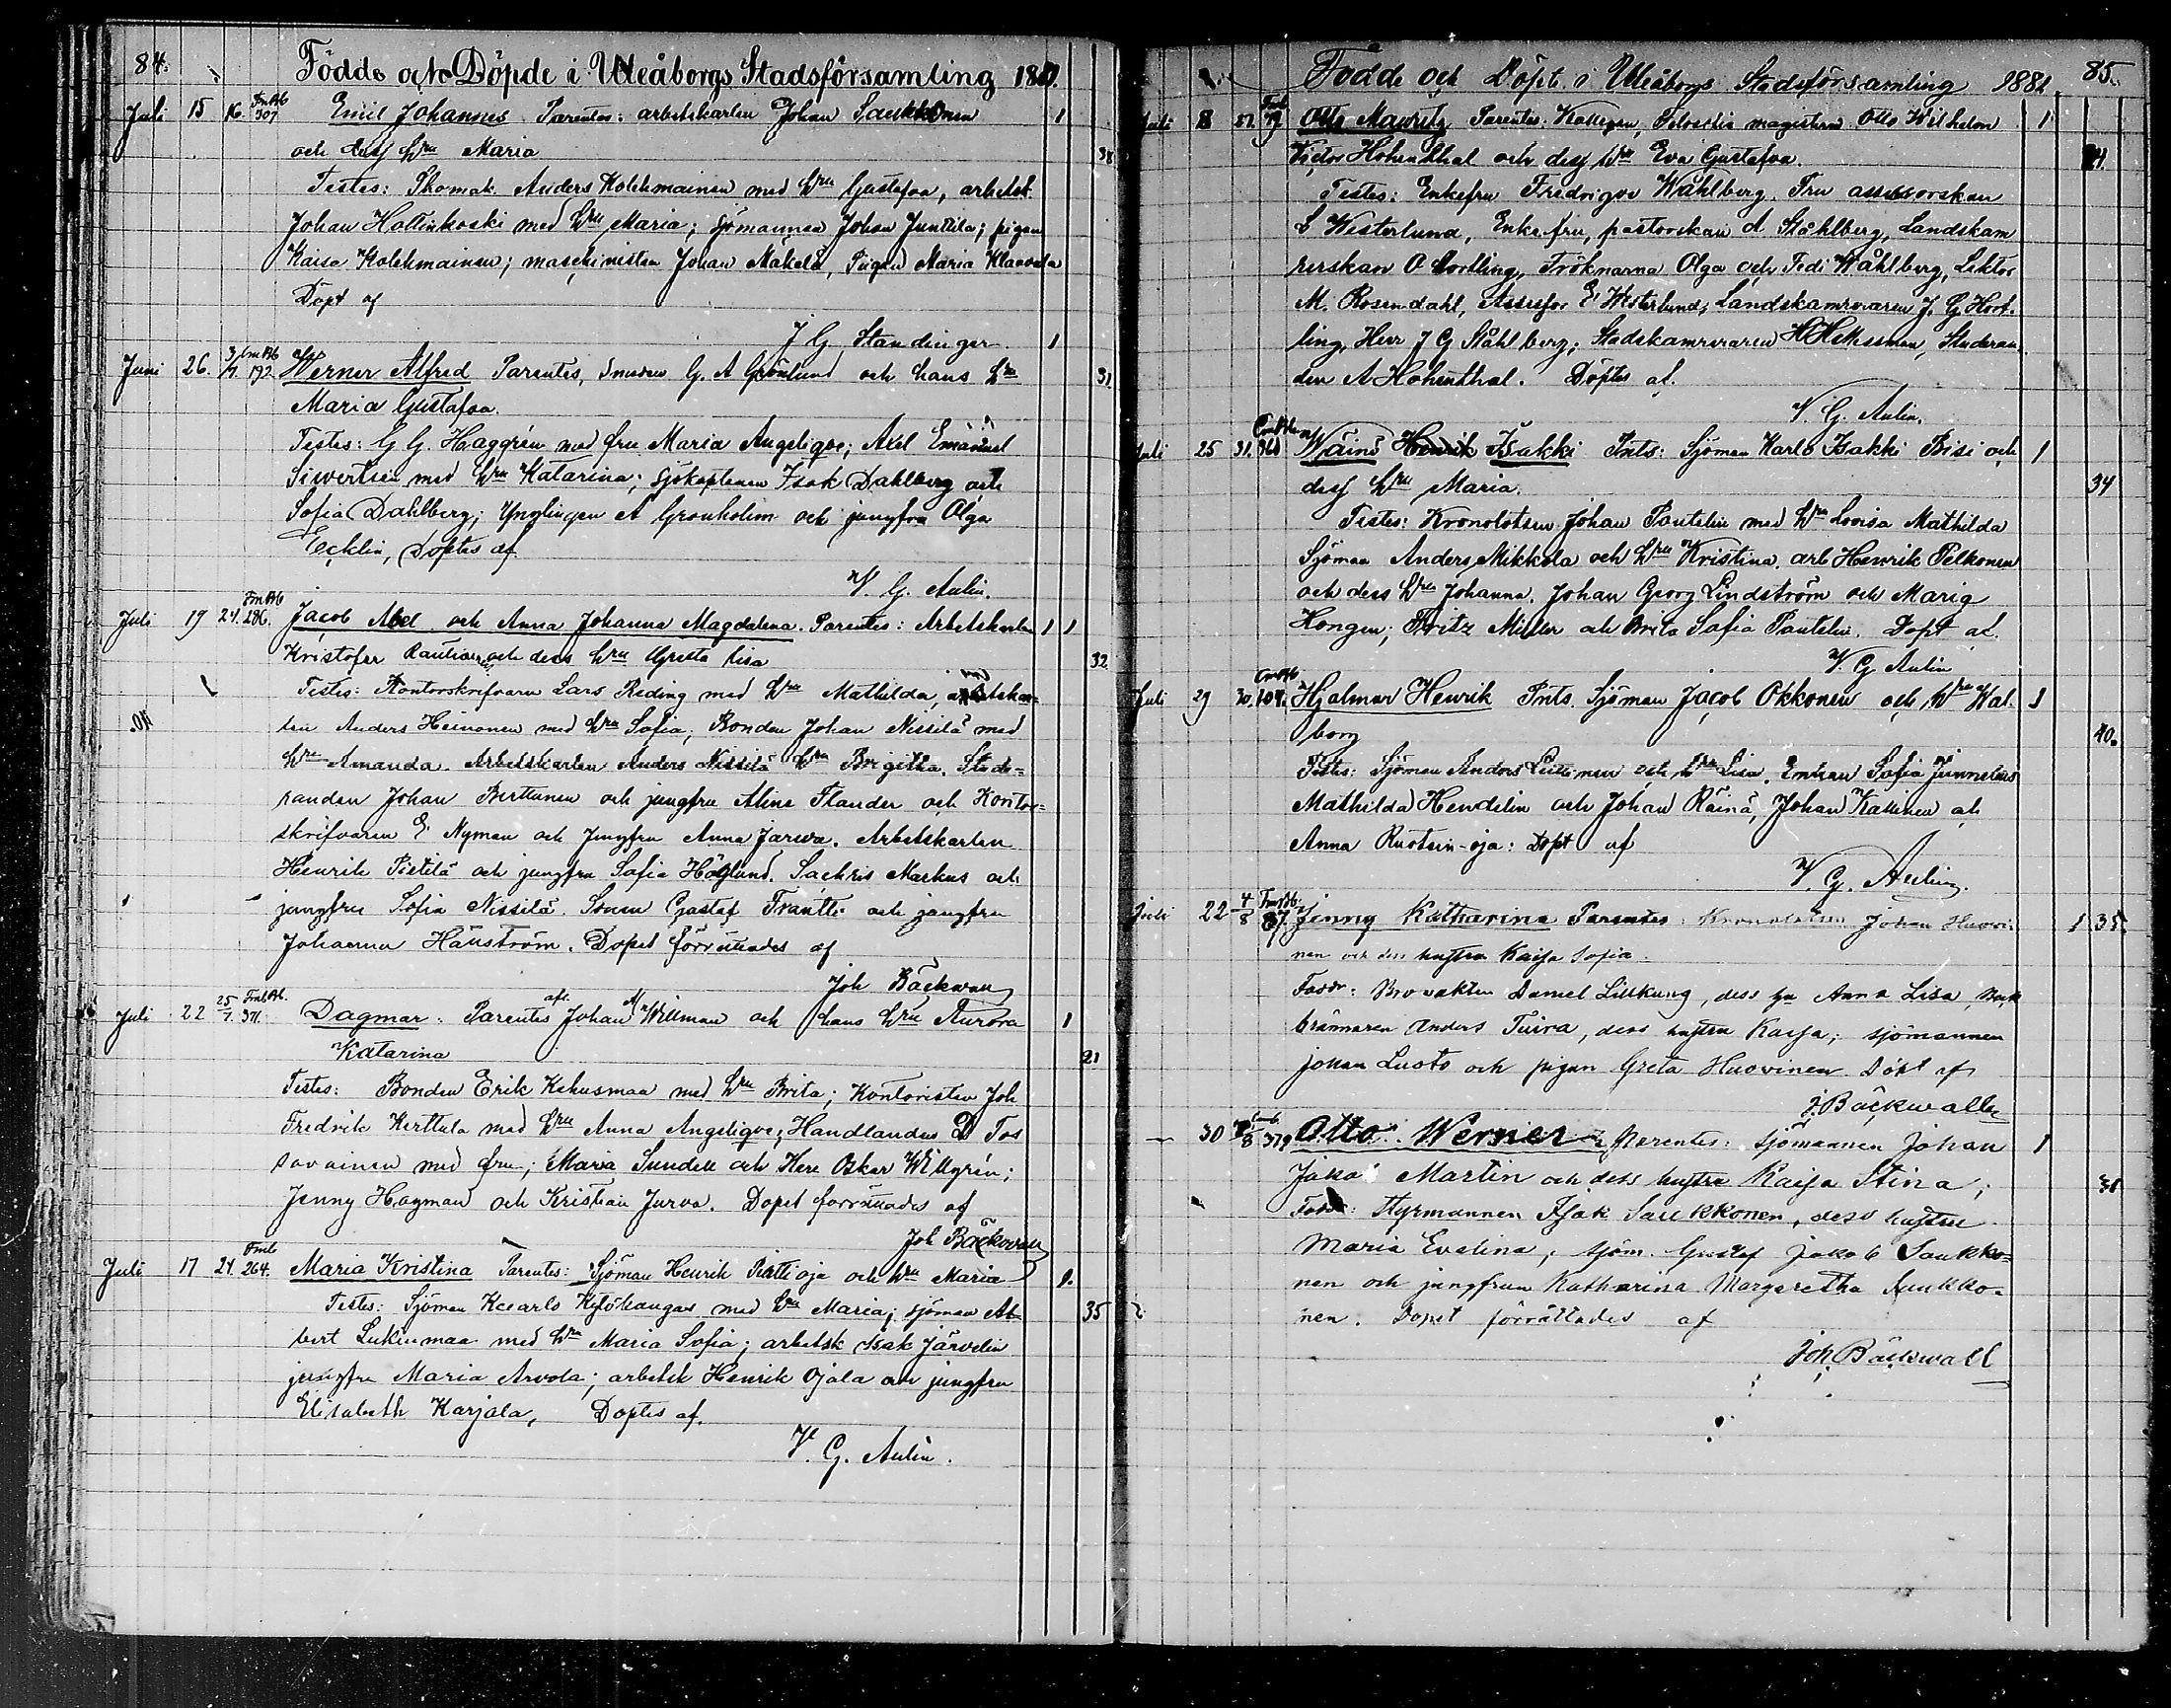 84.
Födde och Döpde i Uleåborgs Stadsförsamling 188
Juli 15 16. FmBb 307 Emil Johannes Parentes: arbetskarlen Johan Saukkonen 1
och dess Hru Maria 38
Testes: Skomak. Anders Kolehmainen med Hru Gustafva, arbetsk.
Johan Hallinkoski med Hru Maria; sjömannen Johan Junttila; pigan
Kaisa Kolehmainen; maschinisten Johan Mäkelä, Pigan Maria
Döpt af
J G Standinger. 1
Juni 26. 3/7. 192. Werner Alfred Parentes, G. A Grönlund och hans Hru 31
Maria Gustafva.
Testes: G G. Häggrén med fru Maria Angelique; Axel Emanuel
Siwertsen med Hru Katarina; Sjökaptenen Isak Dahlberg och
Sofia Dahlberg; Ynglingen A Gronholm och jungfru Olga
Ecklin, Doptes af.
V. G. Aulin.
Juli 19 24. FmBb 286. Jacob Abel och Anna Johanna Magdalena. Parentes: Arbetskarlen 1 1
Kristofer Rautiainen och dess Hru Greta Lisa 32.
Testes: Kontorskrifvaren Lars Reding med Hru Mathilda, arbetskar-
len Anders Heinonen med Hru Sofia; Bonden Johan Nissilä med
Hru Amanda. Arbetskarlen Anders Nissilä Hru Brigitha. Stude-
randen Johan Berttunen och jungfru Aline Flander och Kontor-
skrifvaren E Nyman och Jungfru Anna Jarva. Arbetskarlen
Henrik Pietilä och jungfru Sofia Höglund. Sachris Markus och
jungfru Sofia Nissilä. Gustaf Frantti och jungfru
Johanna Hänström. Dopet förrättades af
Joh Bäckvall
Juli 22 25/7. FmlBb. 371. Dagmar: Parentes Johan Willman och hans Hru Aurora 1
Katarina 21
Testes: Bonden Erik Kehusmaa med Hru Brita; Kontoristen Joh
Fredrik Kerttula med Hru Anna Angelique; Handlanden D Tos
savainen med fru; Maria Sundell och Herr Oskar Willgrén;
Jenny Hagman och Kristian Jurva. Dopet förrättades af
Joh Bäckvall
Juli 17 24. Fmb 264. Maria Kristina Parentes: Sjöman Henrik Piättioja och Hru Maria 1.
Testes: Sjöman Kaarlo Kylökangas med Hru Maria; sjöman Al- 35
bert Lukinmaa med Hru Maria Sofia; arbetsk Isak Järvelin
jungfru Maria Arvola; arbetsk Henrik Ojala och jungfru
Elisabeth Karjala, Doptes af.
V. G. Aulin.
85.
Födde och Döpte i Uleåborgs Stadsförsamling 1882
Juli 8 Otto Mauritz Parentes: Kollegan, Filosofie magistern Otto Wilhelm 1
Victor Hohenthal och dess Hru Eva Gustafva.
Testes: Enkefru Fredrique Wåhlberg. Fru assessorskan
L Westerlund, Enkefru, pastorskan A Ståhlberg, Landskam
rerskan O Hortling, Fröknarna Olga och Fedi Wåhlberg, Lektor
M. Rosendahl, Assessor E Westerlund, Landskamreraren J. G. Hort-
ling, Herr J G Ståhlberg; Stadskamreraren H Hellssman, Studeran-
den A Hohenthal. Döptes af.
V. G. Aulin.
Juli 25 31. 360 Wäinö Henrik Isakki Pnts: Sjöman Karl Isakki Pisi och 1
dess Hru Maria. 34
Testes: Kronolotsen Johan Pantelin med Hru Lovisa Mathilda
Sjöman Anders Mikkola och Hru Kristina, arb Henrik Pelkonen
och dess Hru Johanna. Johan Georg Lindström och Maria
Hongen; Fritz Miller och Brita Sofia Pantelin. Döpt af.
V. G Aulin
Juli 29 30. 104. Hjalmar Henrik Pnts. Sjöman Jacob Okkonen och Hru Wal- 1
borg 40.
Testes: Sjöman Anders Luttinen och Hru Lisa. Enkan Sofia Junnelius
Mathilda Hendelin och Johan Räinä, Johan Kallinen och
Anna Ruotsin-oja: Döpt af
V. G. Aulin.
Juli 22 4/8 FmBb. 87. Jenny Katharina Parentes: Kronolotsen Johan Huovi- 1 35.
nen och dess hustru Kaisa Sofia.
Faddr: Brovakten Daniel Lillkung, dess hu Anna Lisa, beck
brännaren Anders Tuira, dess hustru Kaisa; sjömannen
johan Lusto och pigan Greta Huovinen Döpt af
J. Bäckwall
30 /8 379 Otto Werner Parentes: sjömannen Johan 1
Jakob Martin och dess hustru Kaisa Stina; 38
Faddr: Styrmannen Isak Saukkonen, dess hustru
Maria Evelina; sjöm. Gustaf Jakob Saukko-
nen och jungfrun Katharina Margaretha Saukko-
nen. Dopet förrättades af
Joh. Bäckwall